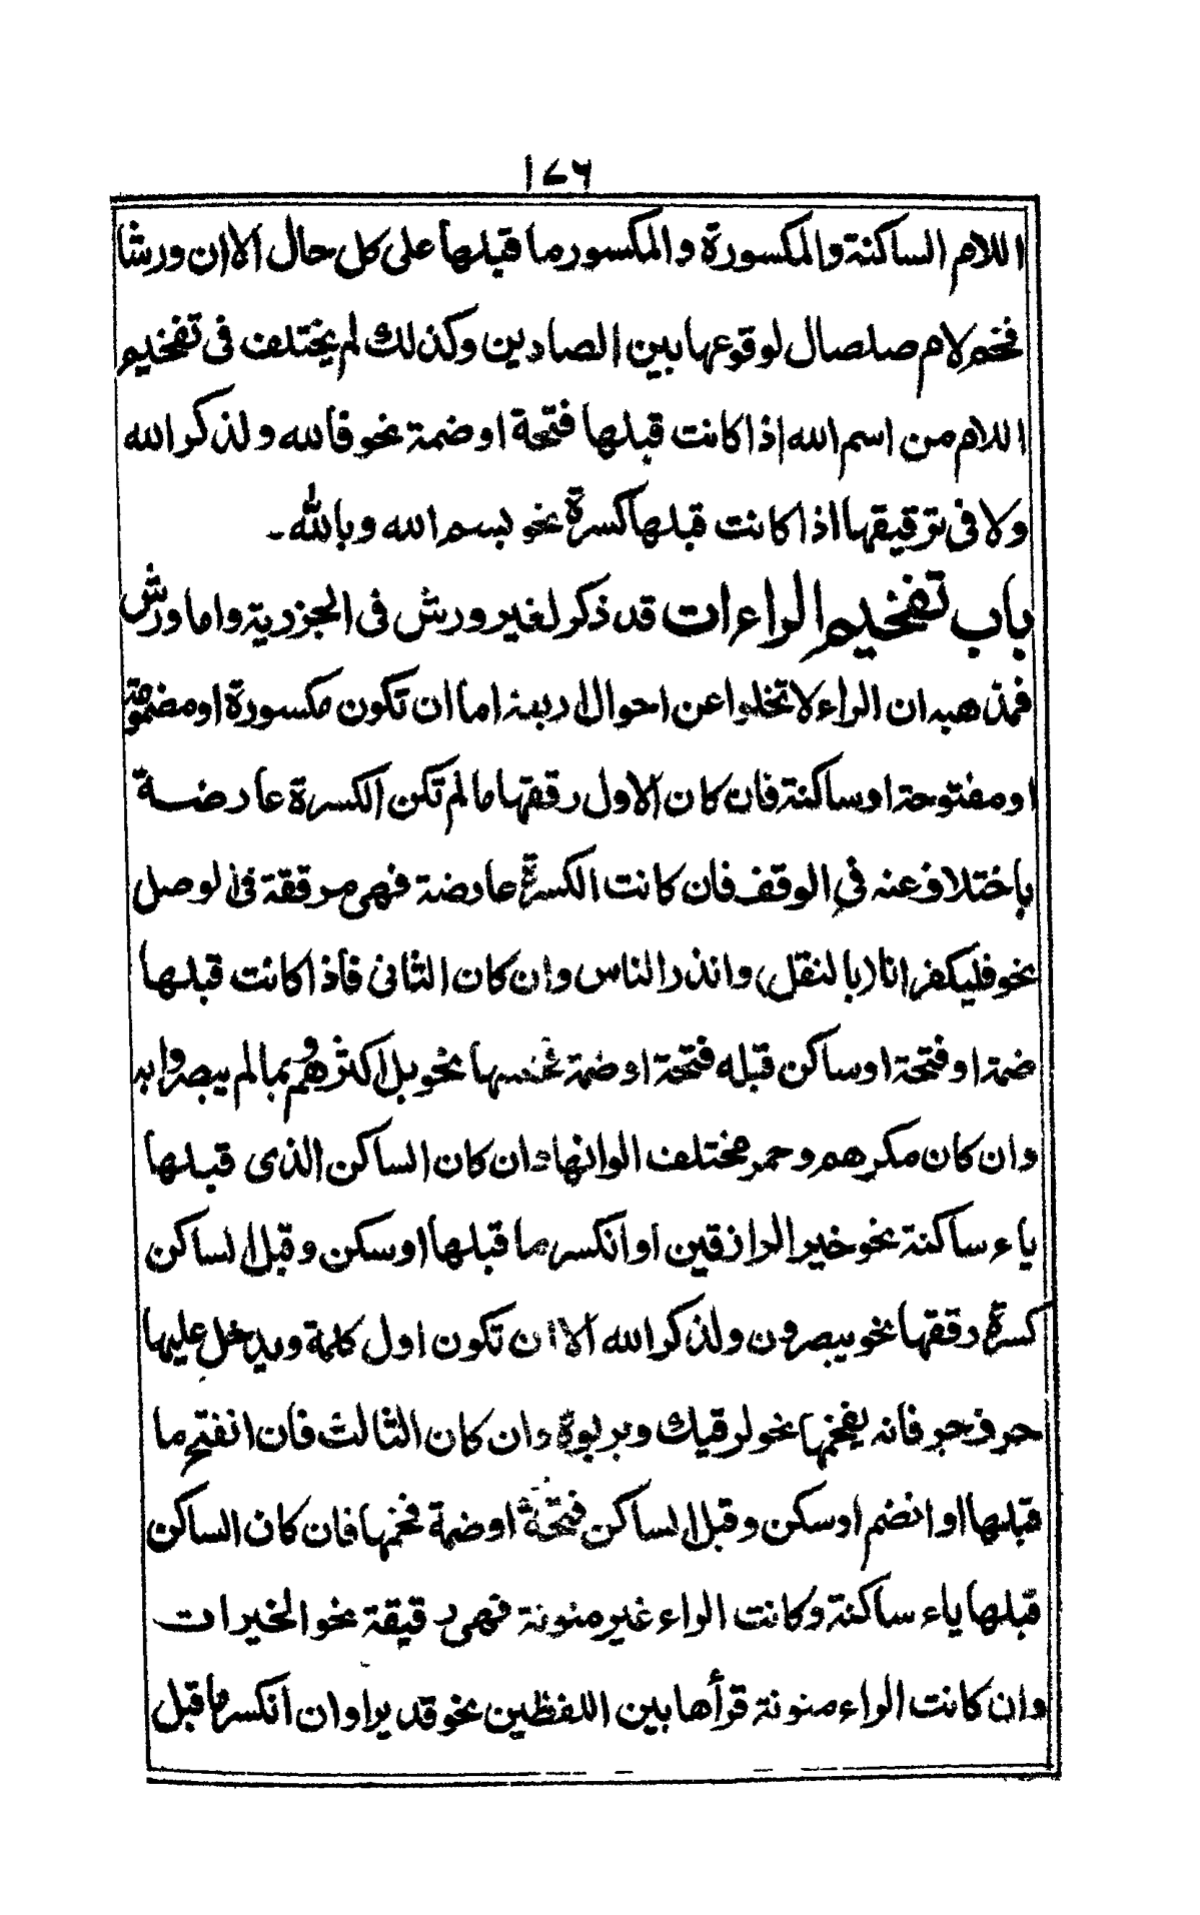 ١٧٦
اللام الساكنة والمكسورة والمكسور ما قبلها على كل حال الا ان ورشا
فخم لام صلصال لوقوعها بين الصادين وكذلك لم يختلف فى تفخيم
اللام من اسم الله اذا كانت قبلها فتحة او ضمة نحو قالله ولذكر الله
ولا فى ترقيقها اذا كانت قبلها كسرة نحو بسم الله وبالله ـ
باب تفخيم الراءات قد ذكر لغير ورش فى الجزرية واما ورش
فمذهبه ان الراء لا تخلوا عن احوال اربعة اما ان تكون مكسورة او مضمومة
او مفتوحة او ساكنة فان كان الاول رققها ما لم تكن الكسرة عارضة
باختلاف عنه في الوقف فان كانت الكسرة عارضة فهى مرققة فى الوصل
نحو فليكفر انا (بالنقل) وانذر الناس وان كان الثانى فاذا كانت قبلها
ضمة او فتحة او ساكن قبله فتحة او ضمة نحو بل اكثرهم وبما لم يبصروا به
وان كان مكرهم وحمر مختلف الوانها وان كان الساكن الذى قبلها
ياء ساكنة نحو خير الرازقين او انكسر ما قبلها او سكن وقبل الساكن
كسرة رققها نحو يبصرون ولذكر الله الا ان تكون اول كلمة ويدخل عليها
حرف جر فانه يفخمها نحو لرقيك وبربوة وان كان الثالث فان انفتح ما
قبلها او انضم او سكن وقبل الساكن فتحة او ضمة فخمها فان كان الساكن
قبلها ياء ساكنة وكانت الراء غير منونة فهى رقيقة نحو الخيرات
وان كانت الراء منونة قرأها بين اللفظين نحو قديرا وان انكسر ما قبل